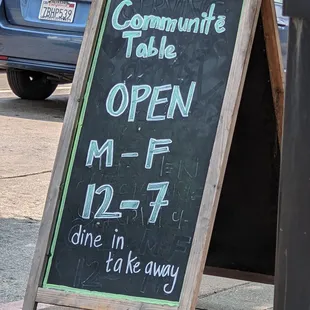 Community
Table
OPEN
M-F
12-7
dine in
take away
7BHP538